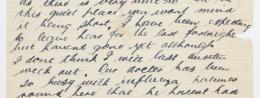 as there is very little to do in
this quiet place you wont mind
it being short, I have been expecting
to leave hear for the last fortnight
but havent gone yet although
I dont think I will last another
week out. Our doctor has been
so busy with influenza patients
round here that he havent had